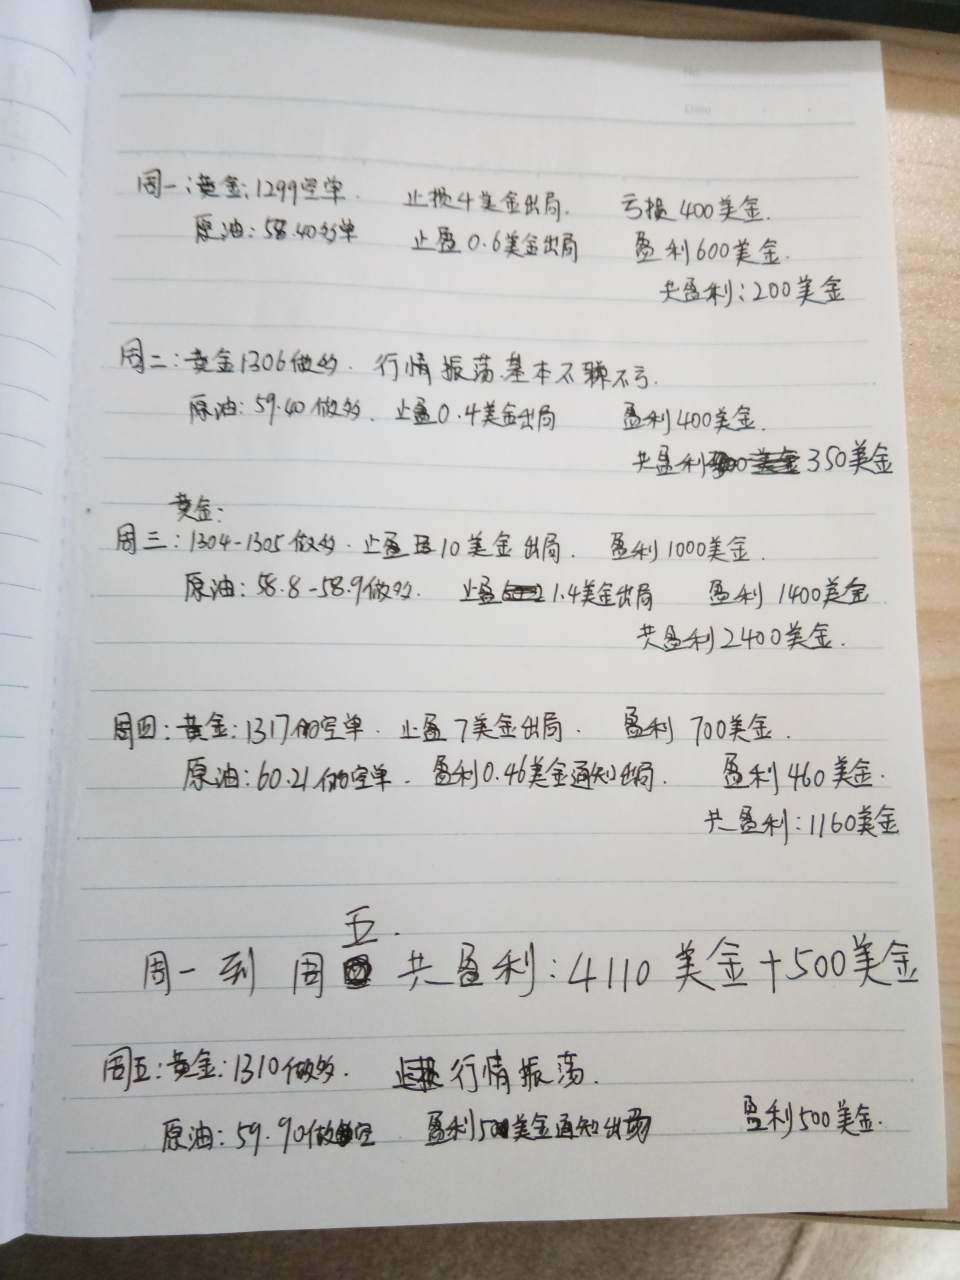 周一:黄金:1299空单. 止损4美金出局. 亏损400美金.
原油:58.40多单 止盈0.6美金出局 盈利600美金.
共盈利:200美金
周二:黄金1306做多. 行情振荡.基本不赚不亏.
原油:59.40做多. 止盈0.4美金出局 盈利400美金.
共盈利 350美金
黄金:
周三:1304-1305做多. 止盈10美金出局. 盈利1000美金.
原油:58.8-58.9做多. 止盈 1.4美金出局 盈利1400美金
共盈利2400美金.
周四:黄金:1317做空单. 止盈7美金出局. 盈利 700美金.
原油:60.21做空单. 盈利0.46美金通知出局. 盈利460美金.
共盈利:1160美金
五.
周一到周 共盈利:4110美金+500美金
周五:黄金:1310做多. 行情振荡.
原油:59.90做空 盈利50美金通知出场 盈利500美金.